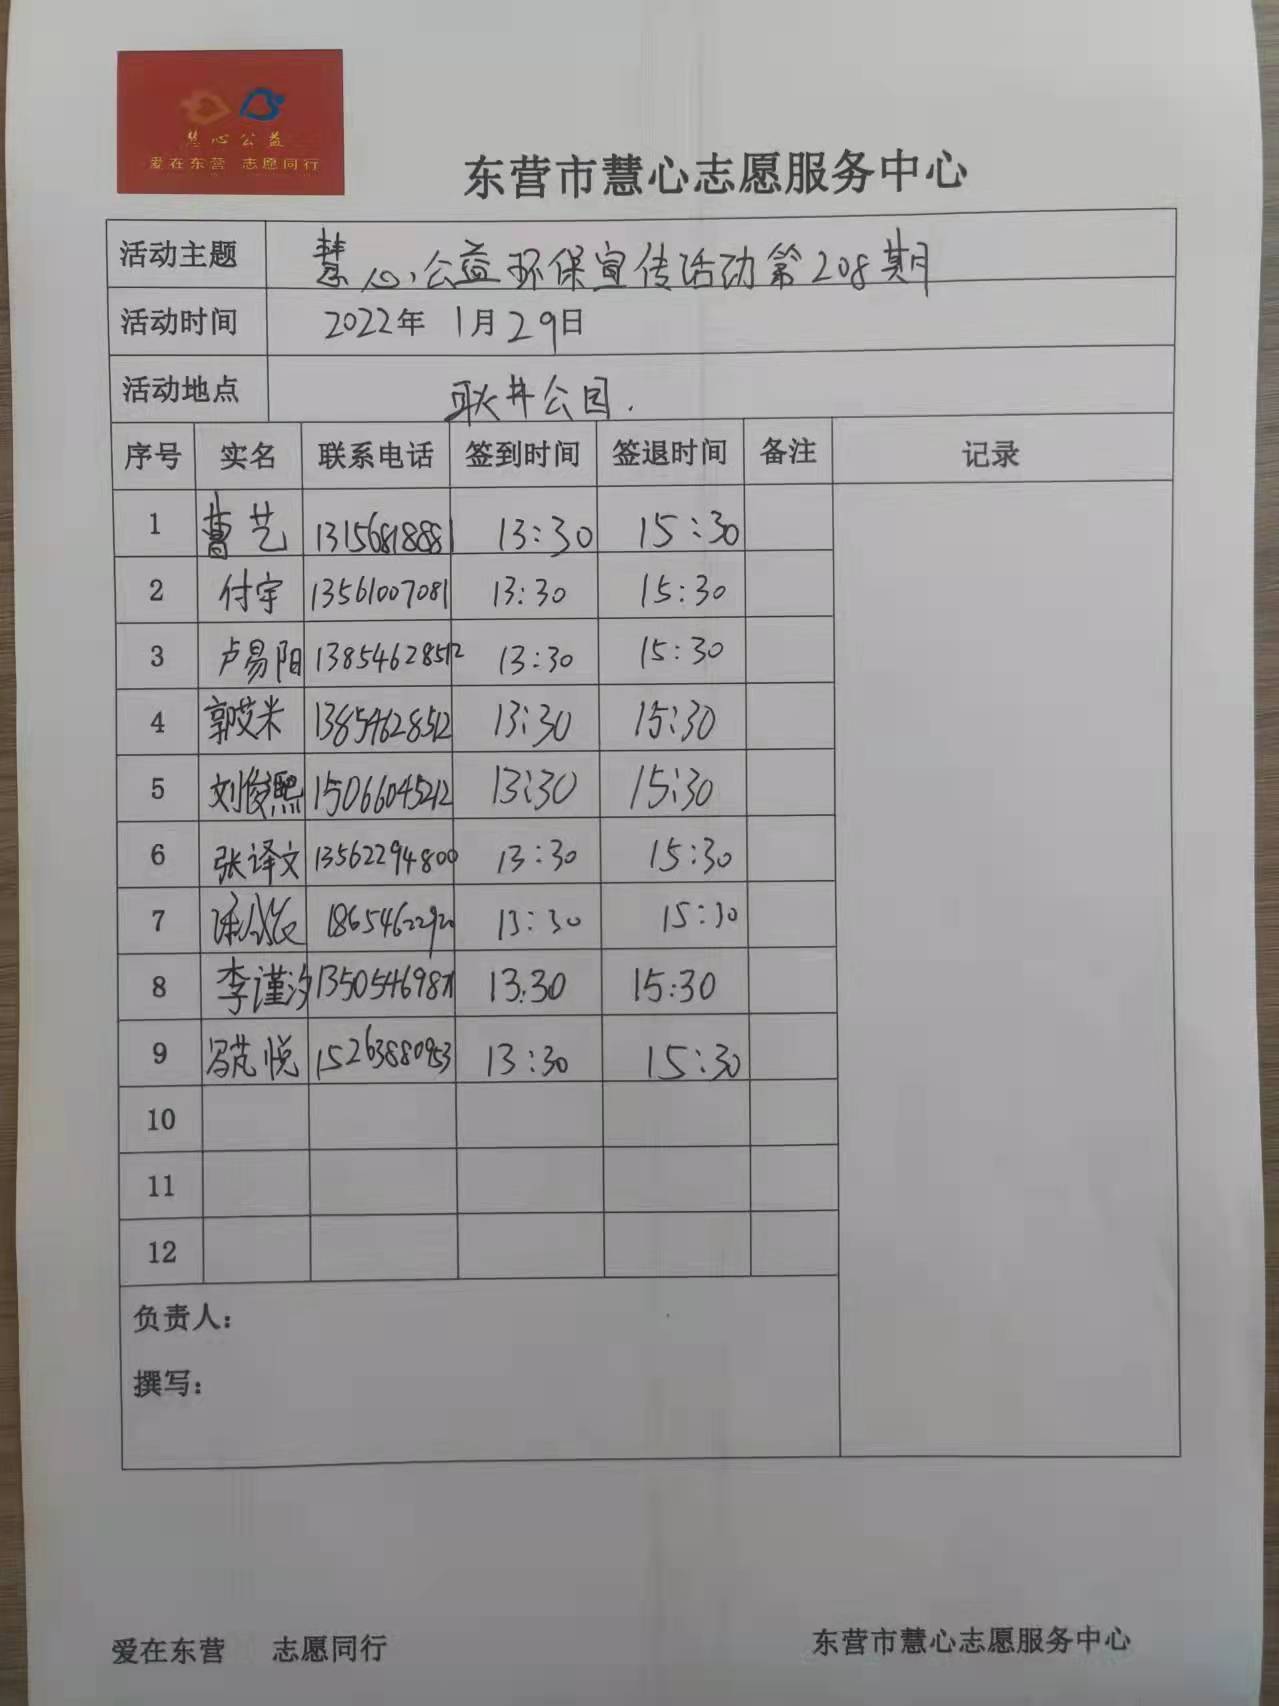 慧心公益
爱在东营 志愿同行
东营市慧心志愿服务中心
活动主题 慧心公益环保宣传活动第208期
活动时间 2022年 1月29日
活动地点 耿井公园.
序号 实名 联系电话 签到时间 签退时间 备注 记录
1 曹艺 13156818881 13:30 15:30
2 付宇 13561007081 13:30 15:30
3 卢易阳 13854628512 13:30 15:30
4 郭艾米 13854628512 13:30 15:30
5 刘俊熙 15066045212 13:30 15:30
6 张译文 13562294800 13:30 15:30
7 13:30 15:30
8 李谨汐 13:30 15:30
9 冯芃悦 15263880953 13:30 15:30
10
11
12
负责人:
撰写:
爱在东营 志愿同行 东营市慧心志愿服务中心